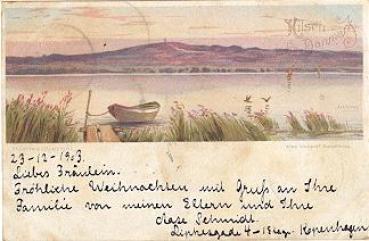 Hilsen fra Danmark
23-12-1903.
Liebes Fräulein.
Fröhliche Weihnachten mit Gruß an Ihre
Familie von meinen Eltern und Ihre
Aase Schmidt.
4 - Kopenhagen